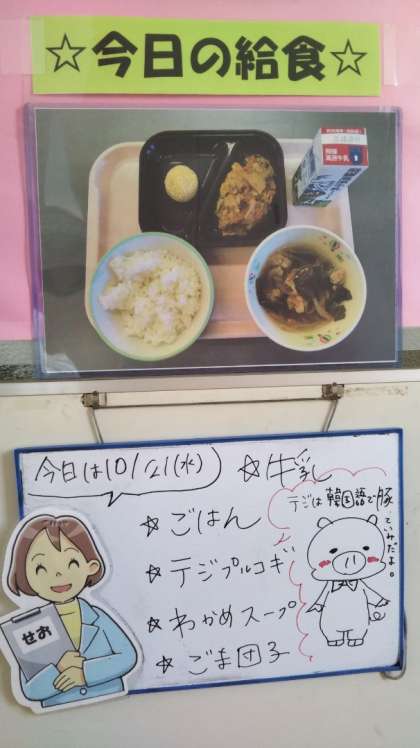 ☆今日の給食☆
今日は10/21(水)
☆牛乳
☆ごはん
☆テジプルコギ
☆わかめスープ
★ごま団子
テジは韓国語で豚
ていみだよ。
せお